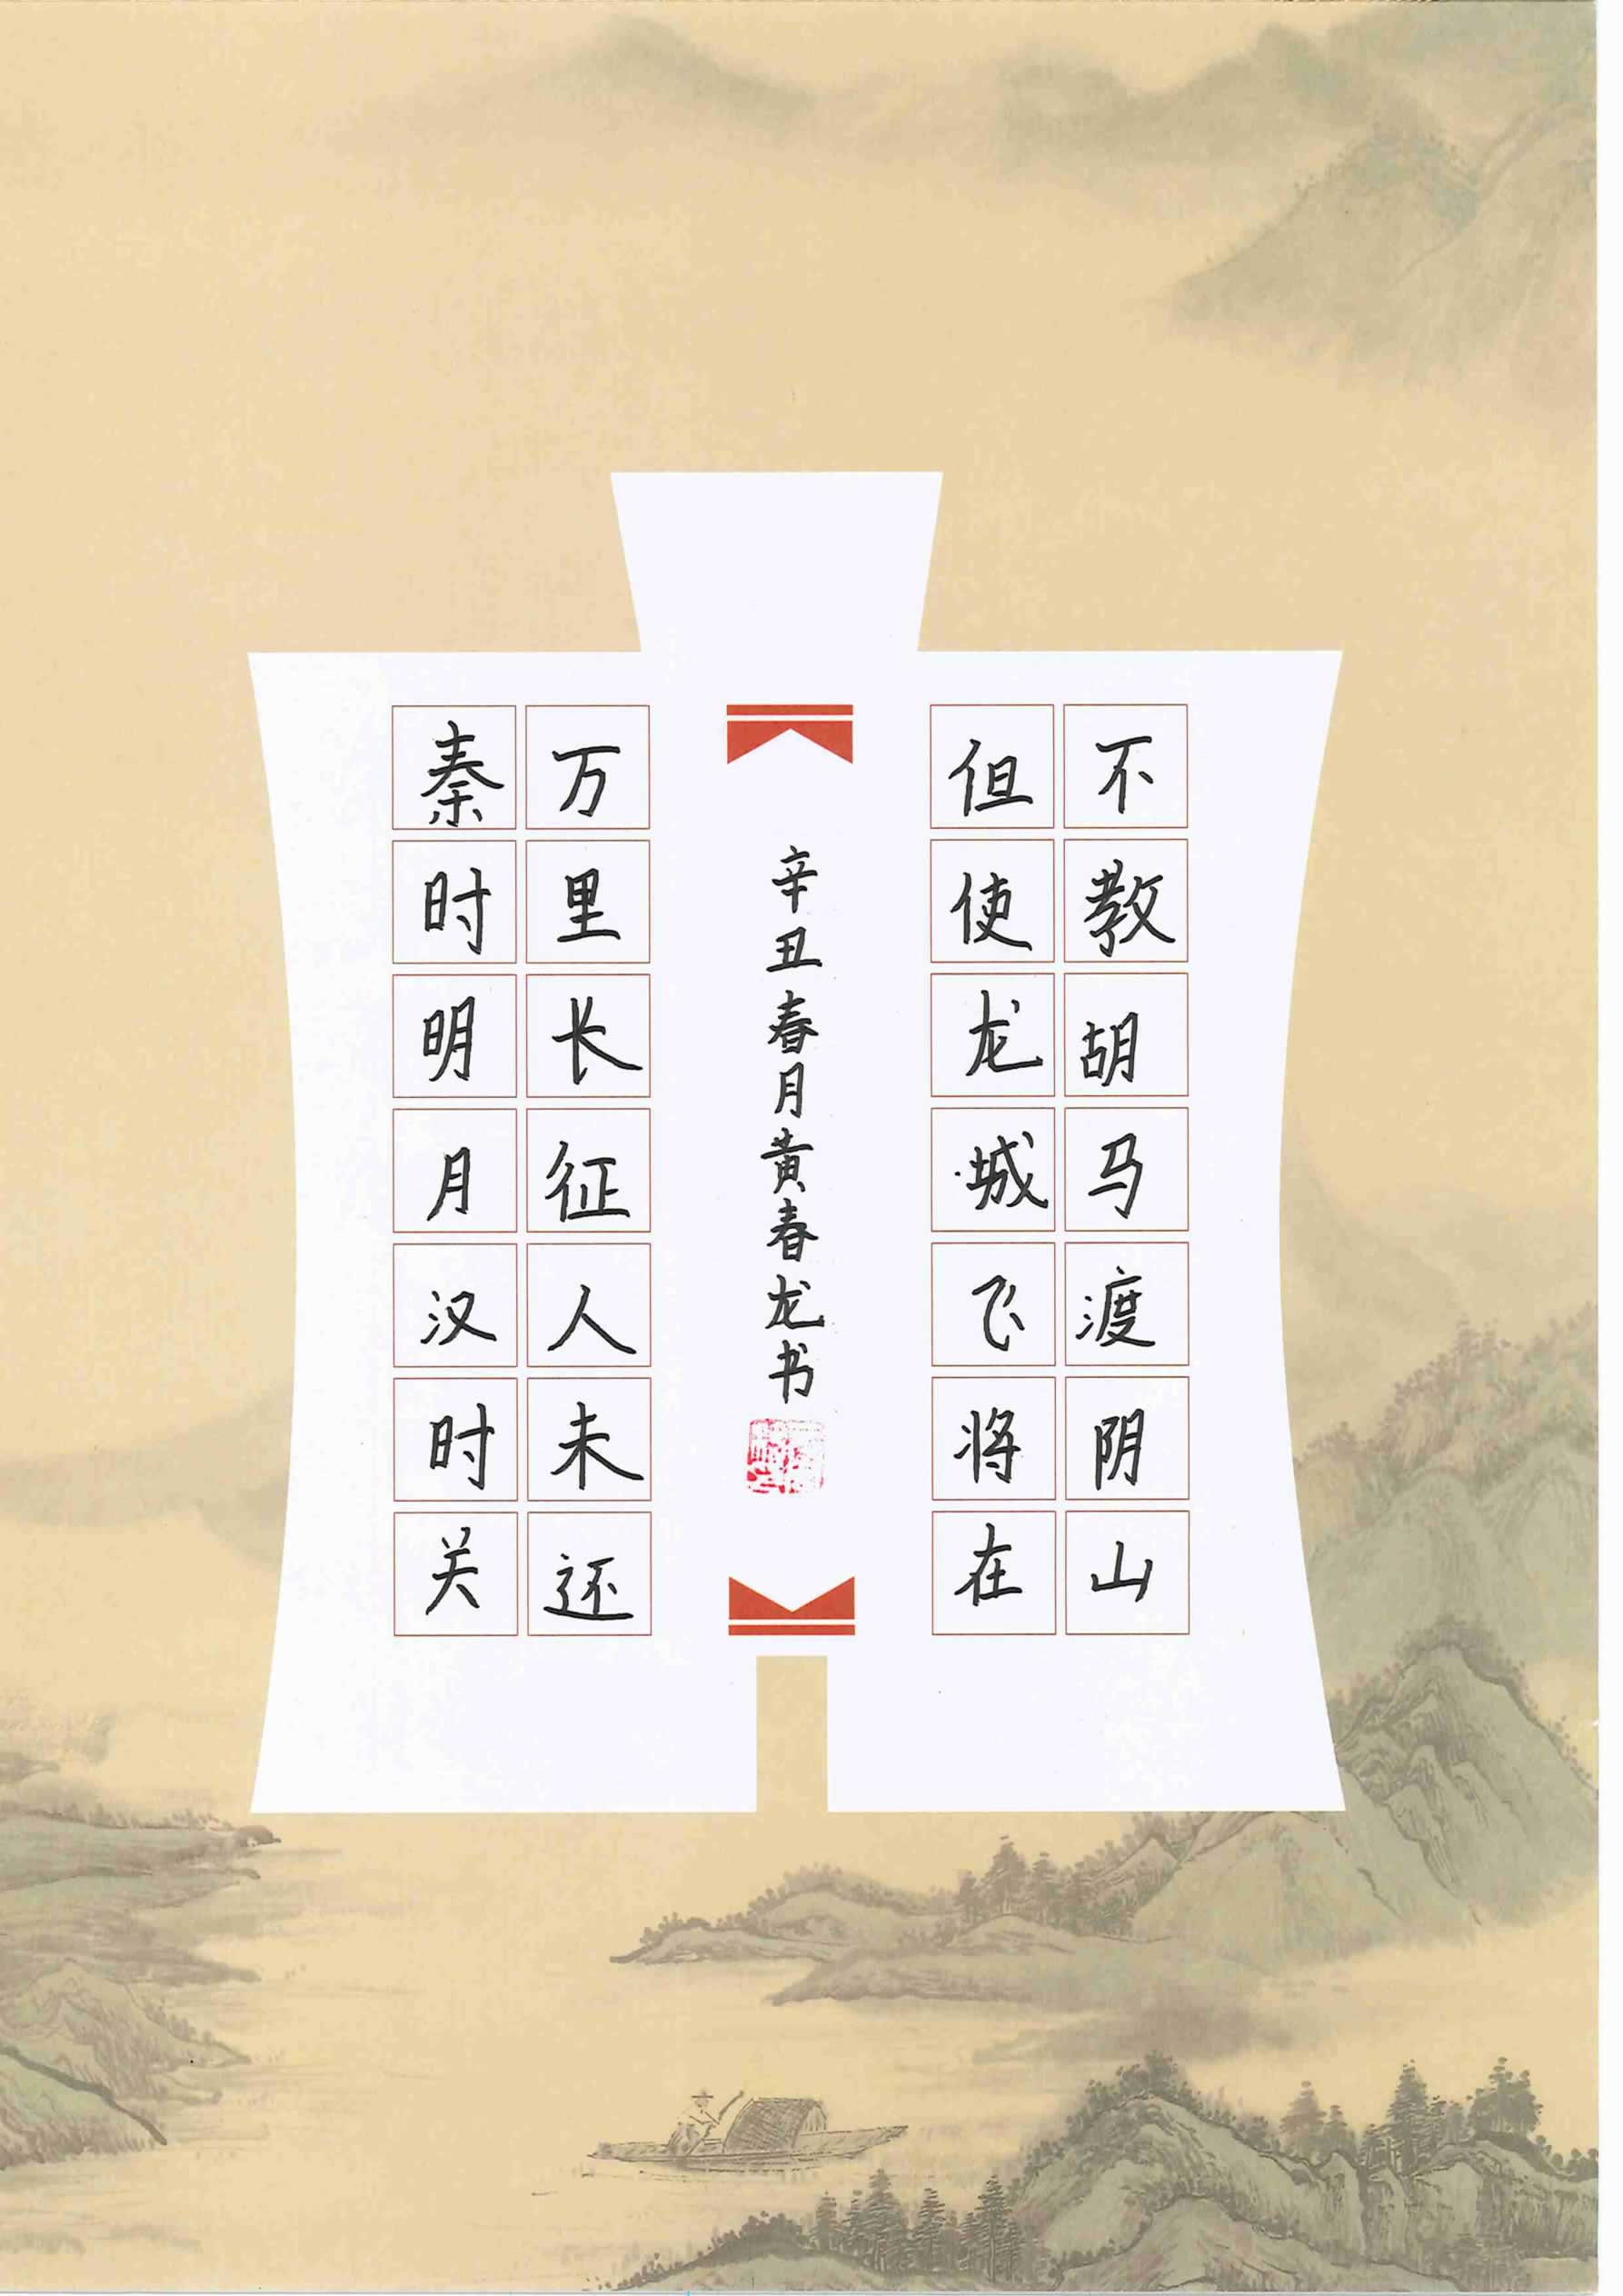 秦时明月汉时关
万里长征人未还
辛丑春月黄春龙书
但使龙城飞将在
不教胡马渡阴山